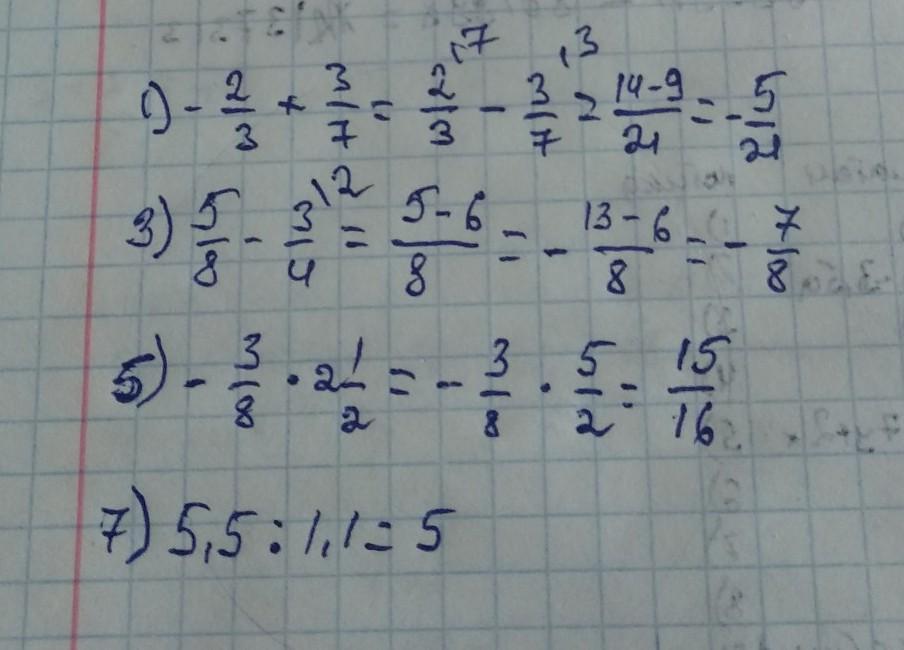 1) - 2/3 + 3/7 = 2/3 \7 - 3/7 \3 = 14-9/21 = - 5/21
3) 5/8 - 3/4 \2 = 5-6/8 = - 13-6/8 = - 7/8
5) - 3/8 · 2 1/2 = - 3/8 · 5/2 = 15/16
7) 5,5 : 1,1 = 5